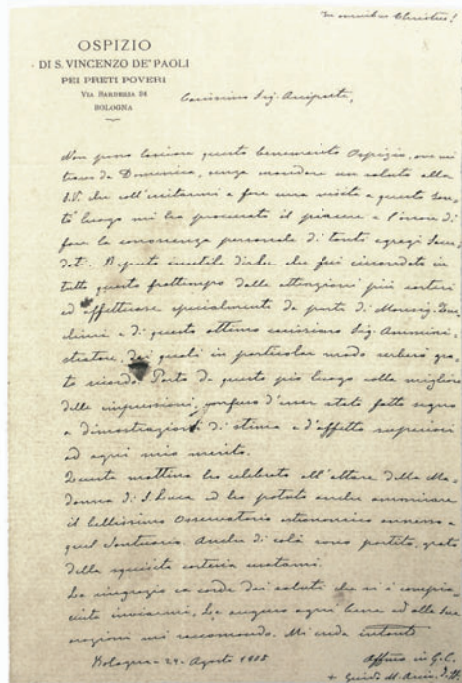 In omnibus Christus!
OSPIZIO
DI S. VINCENZO DE' PAOLI
PEI PRETI POVERI
VIA SARDEGNA 24
BOLOGNA
Carissimo Sig. Arciprete,
Non posso lasciare questo benemerito Ospizio, ove mi
trovo da Domenica, senza mandare un saluto alla
S.V. che coll'invitarmi a fare una visita a questo San-
to luogo mi ha procurato il piacere e l'onore di
fare la conoscenza personale di tanti egregi Sacer-
doti. Reputo inutile dirle che fui circondato in
tutto questo frattempo dalle attenzioni più cortesi
ed affettuose specialmente da parte di Monsig.
e di questo ottimo carissimo Sig. Ammini-
stratore, dei quali in particolar modo serberò gra-
to ricordo. Parto da questo pio luogo colla migliore
delle impressioni, confuso d'esser stato fatto segno
a dimostrazioni di stima e d'affetto superiori
ad ogni mio merito.
Questa mattina ho celebrato all'altare della Ma-
donna di S. Luca ed ho potuto anche ammirare
il bellissimo Osservatorio astronomico annesso a
quel Santuario. Anche di colà sono partito, grato
della squisita cortesia usatami.
La ringrazio di cuore dei saluti che si è compia-
ciuto inviarmi, Le auguro ogni bene ed alle Sue
orazioni mi raccomando. Mi creda intanto
Bologna - 24 - Agosto
Affmo in G.C.
+ Guido M.